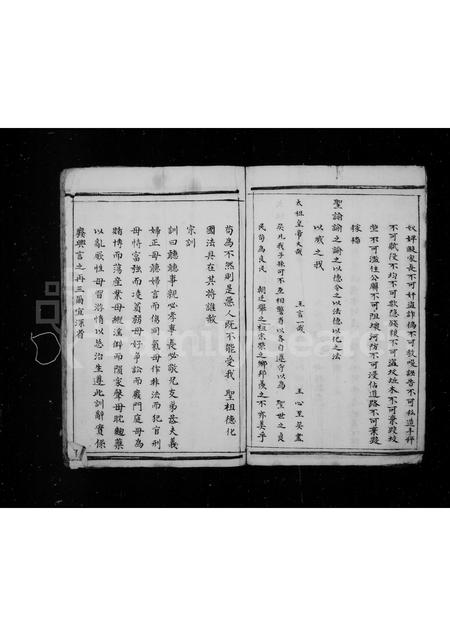 奴婢凝家長不可奸盜詐偽不可教唆誣告不可私造斗秤
不可賦役不均不可欺隱錢粮不可盜墳赴水不可棄毀
塋不可濫住公廨不可阻壞河防不可侵佔道路不可棄毀
稼穡
聖諭諭之諭之以德令之以法德以化之法
以威之我
太祖皇帝大哉 王言一哉 王心至矣盡
矣凡我子孫可不互相警省以各自遵守以為 聖世之良
民苟為良民 朝廷舉之祖宗榮之鄉邦羨之不亦美乎
苟為不然則是愚人既不能受我 聖祖德化
國法具在其將誰赦
宗訓
訓曰聽聽事親必孝事長必敬兄友弟恭夫義
婦正毋聽婦言而傷同氣毋作非法而犯官刑
毋恃富強而凌寡弱毋好爭訟而廢門庭毋為
賭博而蕩產業毋縱淫僻而隕家聲毋耽麯蘖
以亂厥性毋習游惰以怠治生遵此訓辭實保
興言之再三爾宜深省